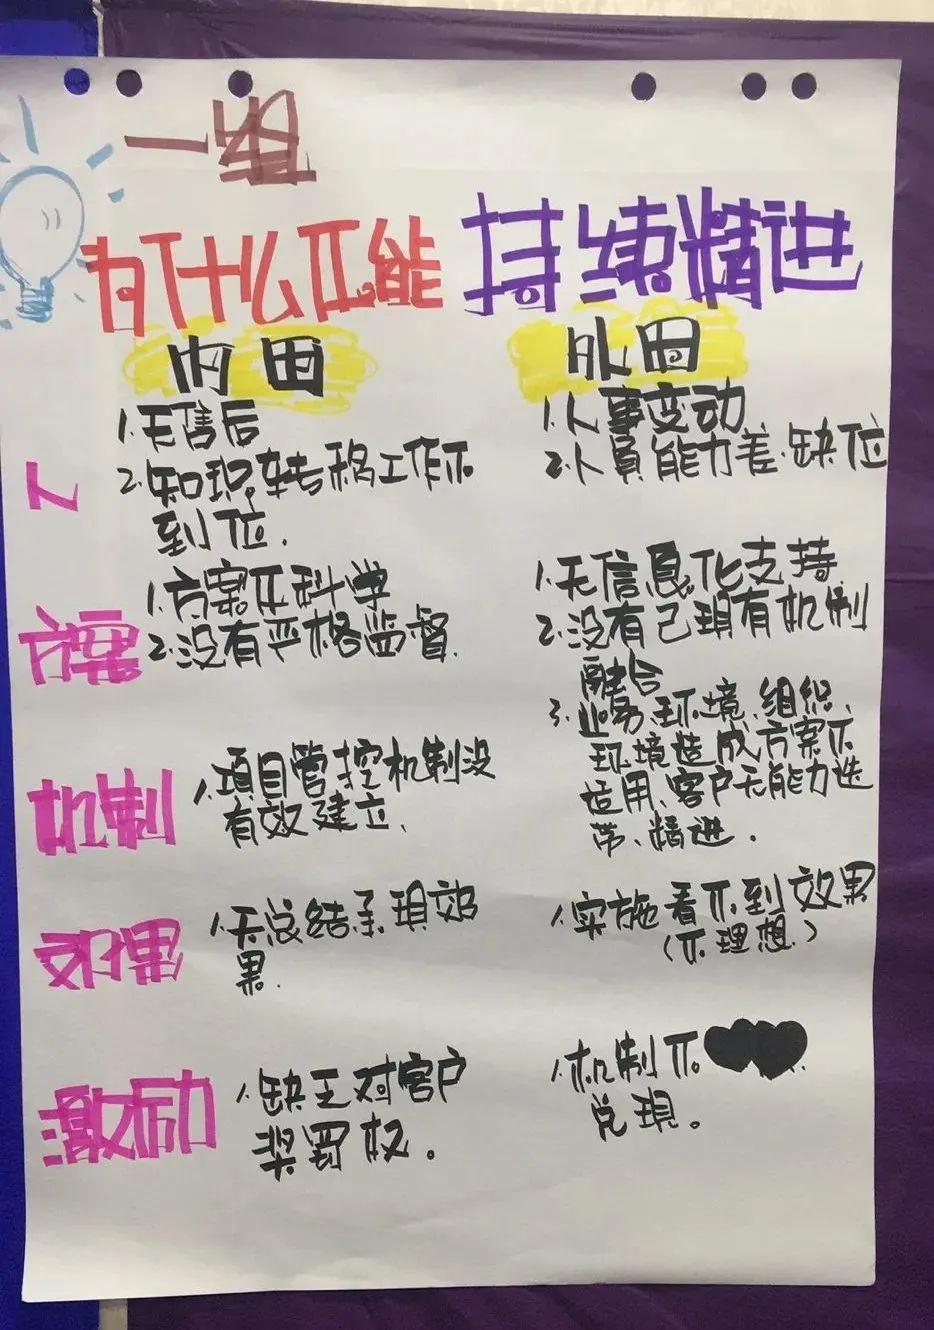 一组
为什么不能 持续精进
内因
外因
人
1.无售后
2.知识转移工作不
到位.
1.人事变动
2.人员能力差.缺位
方案
1.方案不科学
2.没有严格监督.
1.无信息化支持.
2.没有已现有机制
融合
3.业务环境、组织
环境造成方案不
适用、客户无能力迭
带、精进.
机制
1.项目管控机制没
有效建立.
效果
1.无总结呈现效
果.
1.实施看不到效果
(不理想.)
激励
1.缺乏对客户
奖罚权.
1.机制不
兑现。